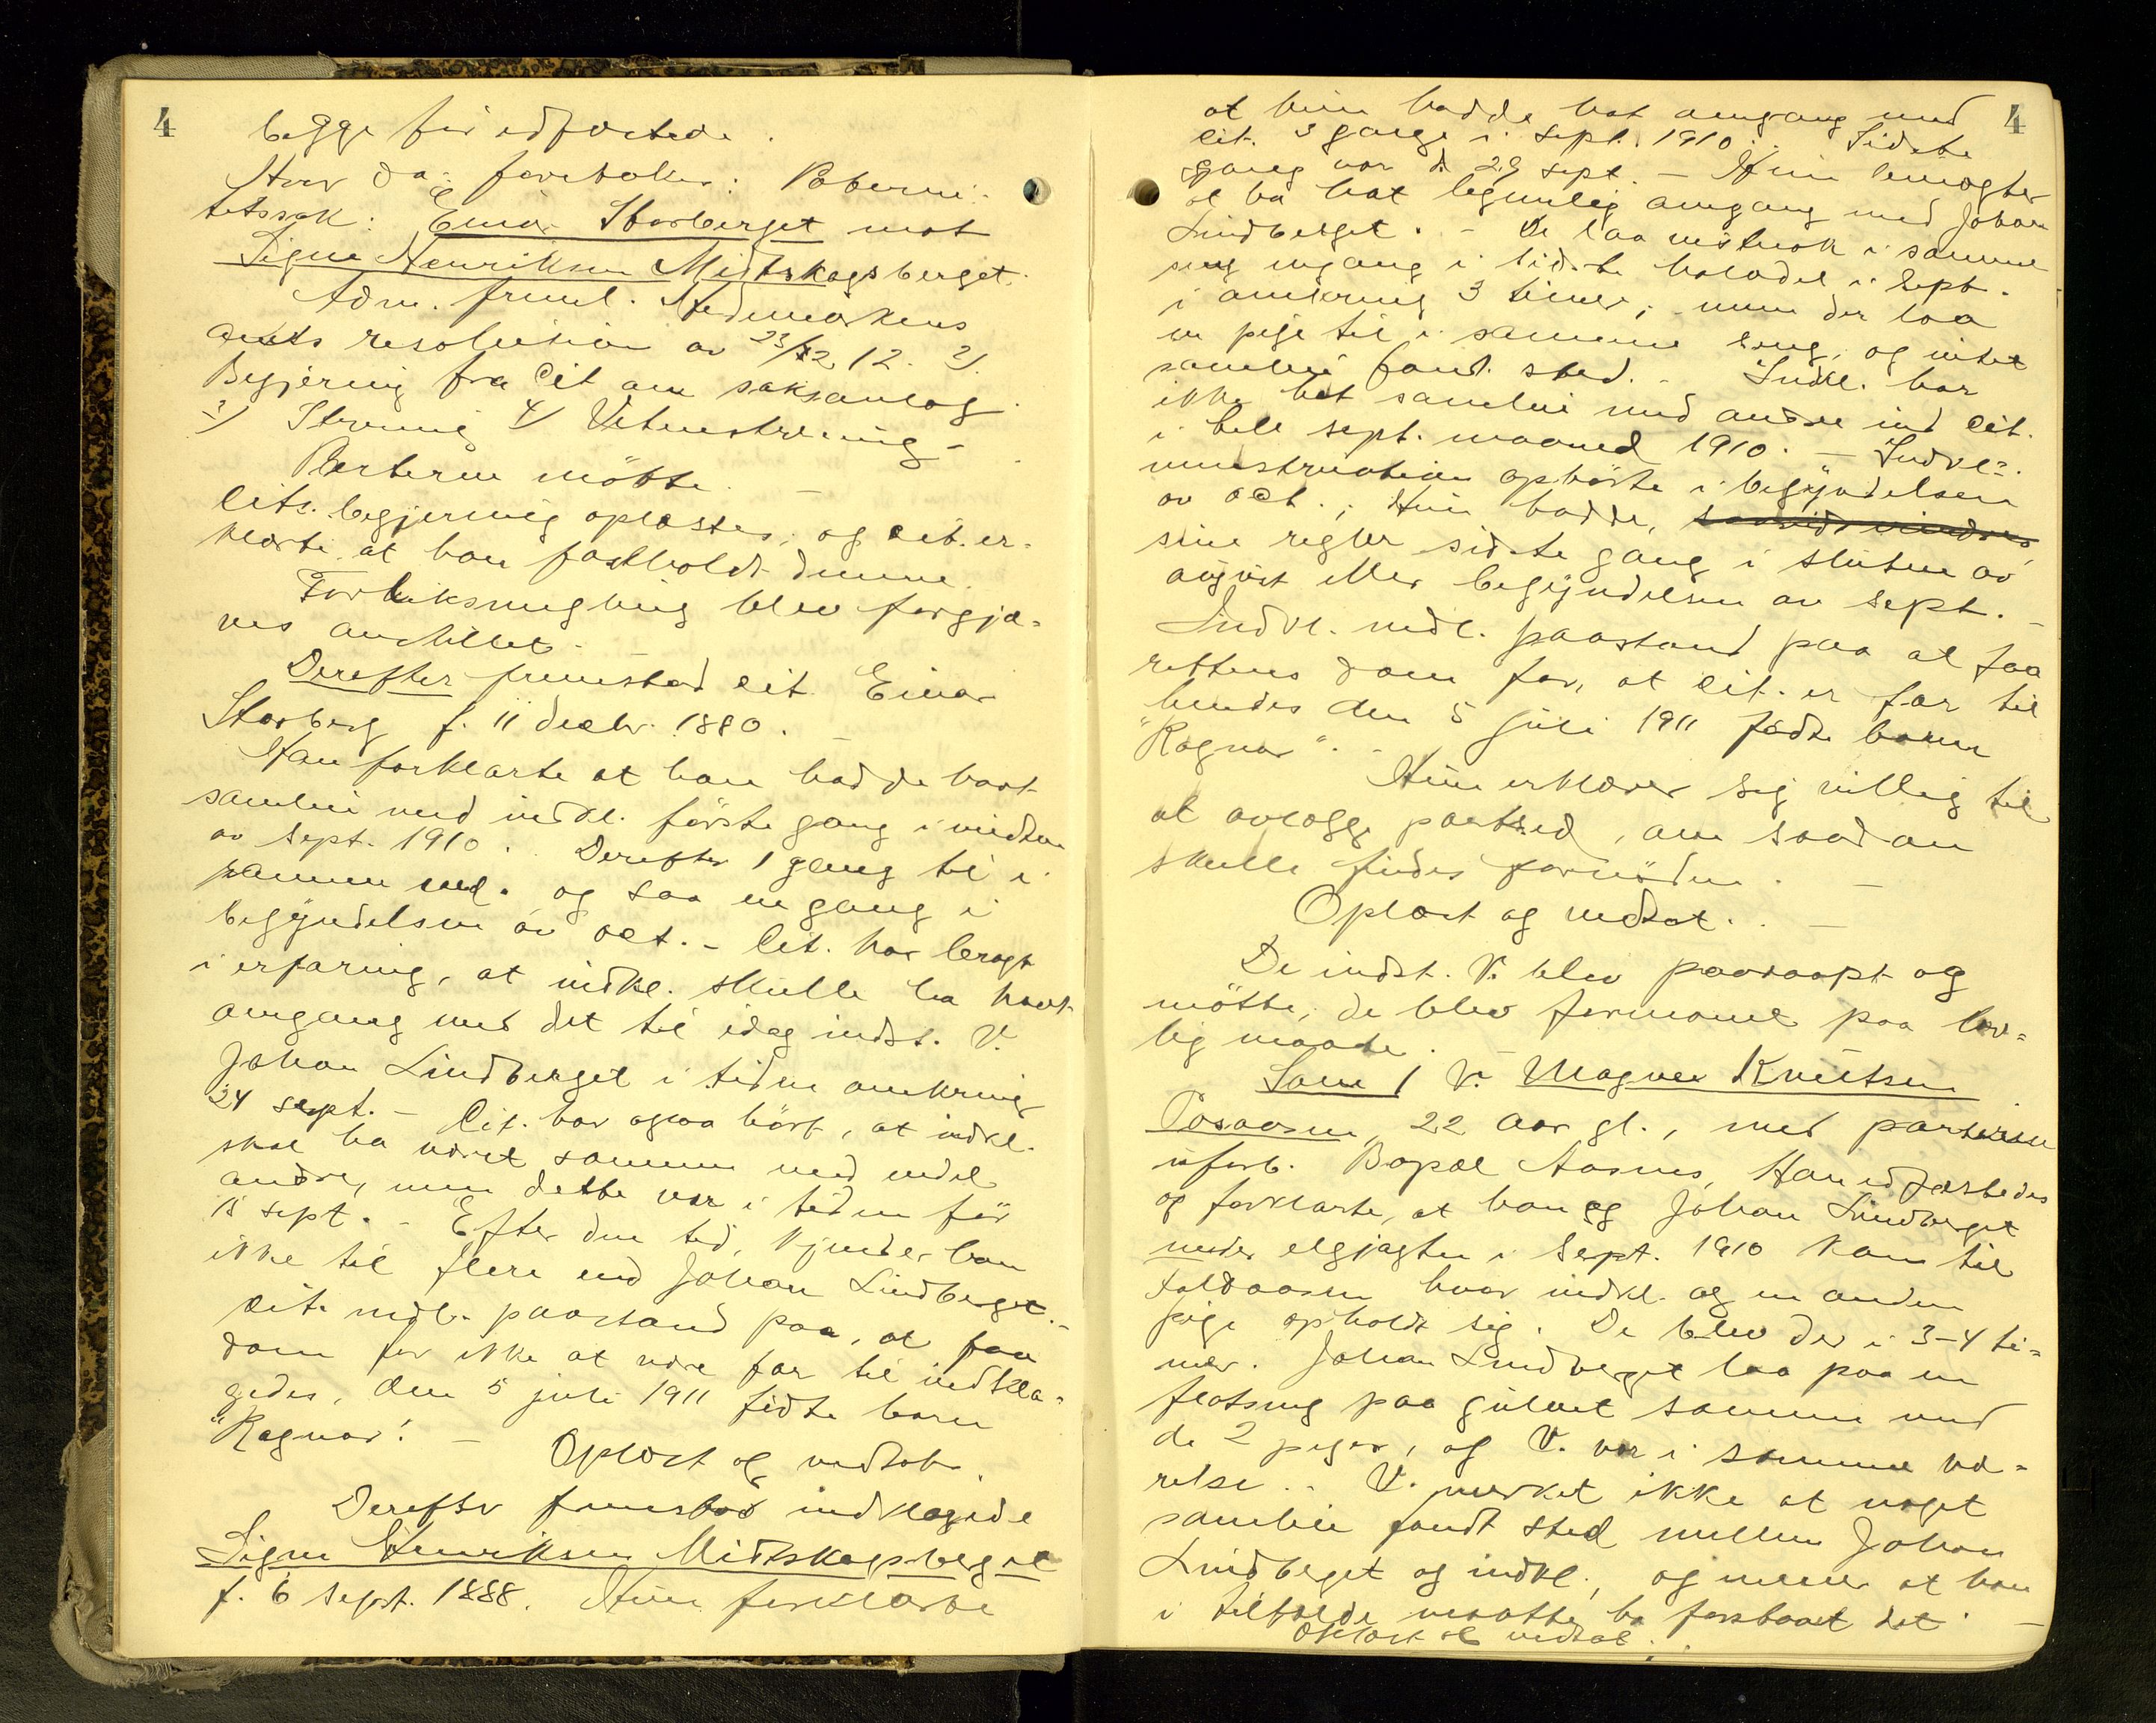 4
begge før edfæstede.
Hvor da foretokes: Paterni-
tetssak: Einar Storberget mot
Signe Henriksen Midtskogsberget.
Adm. freml. Hedemarkens
amts resolution av 23/12 12. 2).
Begjæring fra Cit om saksanlæg.
3) Stevning 4) Vidnestevning -
Parterne møtte. -
Cits. begjæring oplæstes, og cit. er-
klærte at han fastholdt denne.
Forliksmegling blev forgjæ-
ves anstillet. -
Derefter fremstod cit. Einar
Storberg f. 11 decbr. 1880. -
Han forklarte at han hadde havt
samleie med indkl. første gang i midten
av sept. 1910. Derefter 1 gang til i
samme md. og saa en gang i
begyndelsen av oct. - Cit. har bragt
i erfaring, at indkl. skulle ha havt
omgang med det til idag indst. V.
Johan Lindberget i tiden omkring
24 sept. - Cit. har ogsaa hørt, at indkl.
skal ha været sammen med endel
andre, men dette var i tiden før
15 sept. - Efter den tid, kjender han
ikke til flere end Johan Lindberget. -
Cit. nedl. paastand paa, at faa
dom for ikke at være far til indkla-
gedes, den 5 juli 1911 fødte barn
"Ragnar". - Oplæst og vedtat.
Derefter fremstod indklagede
Signe Henriksen Midtskogsberget
f. 6 sept. 1888. Hun forklarte
4
at hun hadde hat omgang med
cit. 3 gange i sept. 1910. Sidste
gang var d. 29 sept. - Hun benegter
at ha hat legemlig omgang med Johan
Lindberget. - De laa vistnok i samme
seng engang i sidste halvdel i sept.
i omkring 3 timer, men der laa
en pige til i samme seng, og intet
samleie fandt sted. - Indkl. har
ikke hat samleie med andre end cit.
i hele sept. maaned 1910. - Indkl's.
menstruation ophørte i begyndelsen
av oct.; Hun hadde,
sine regler sidste gang i slutten av
august eller begyndelsen av sept. -
Indkl. nedl. paastand paa at faa
rettens dom for, at cit. er far til
hendes den 5 juli 1911 fødte barn
"Ragnar". -
Hun erklærer sig villig til
at avlægge partsed, om saadan
skulle findes fornøden. -
Oplæst og vedtat. -
De indst. V. blev paaraapt og
møtte; de blev formanet paa lov-
lig maate.
Som 1 V. Magnus Knutsen
Posaasen, 22 aar gl., med parterne
uforb. Bopæl Aasnes, Han edfæstedes
og forklarte, at han og Johan Lindberget
under elgjagten i sept. 1910 kom til
hvor indkl. og en anden
pige opholdt sig. De blev der i 3-4 ti-
mer. Johan Lindberget laa paa en
flatseng paa gulvet sammen med
de 2 piger, og V. var i samme væ-
relse. - V. merket ikke at noget
samleie fandt sted mellem Johan
Lindberget og indkl., og mener at han
i tilfælde maatte ha forstaaet det. -
Oplæst og vedtat.